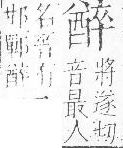 醉
將遂切
音最人
名有一
邯鄲醉